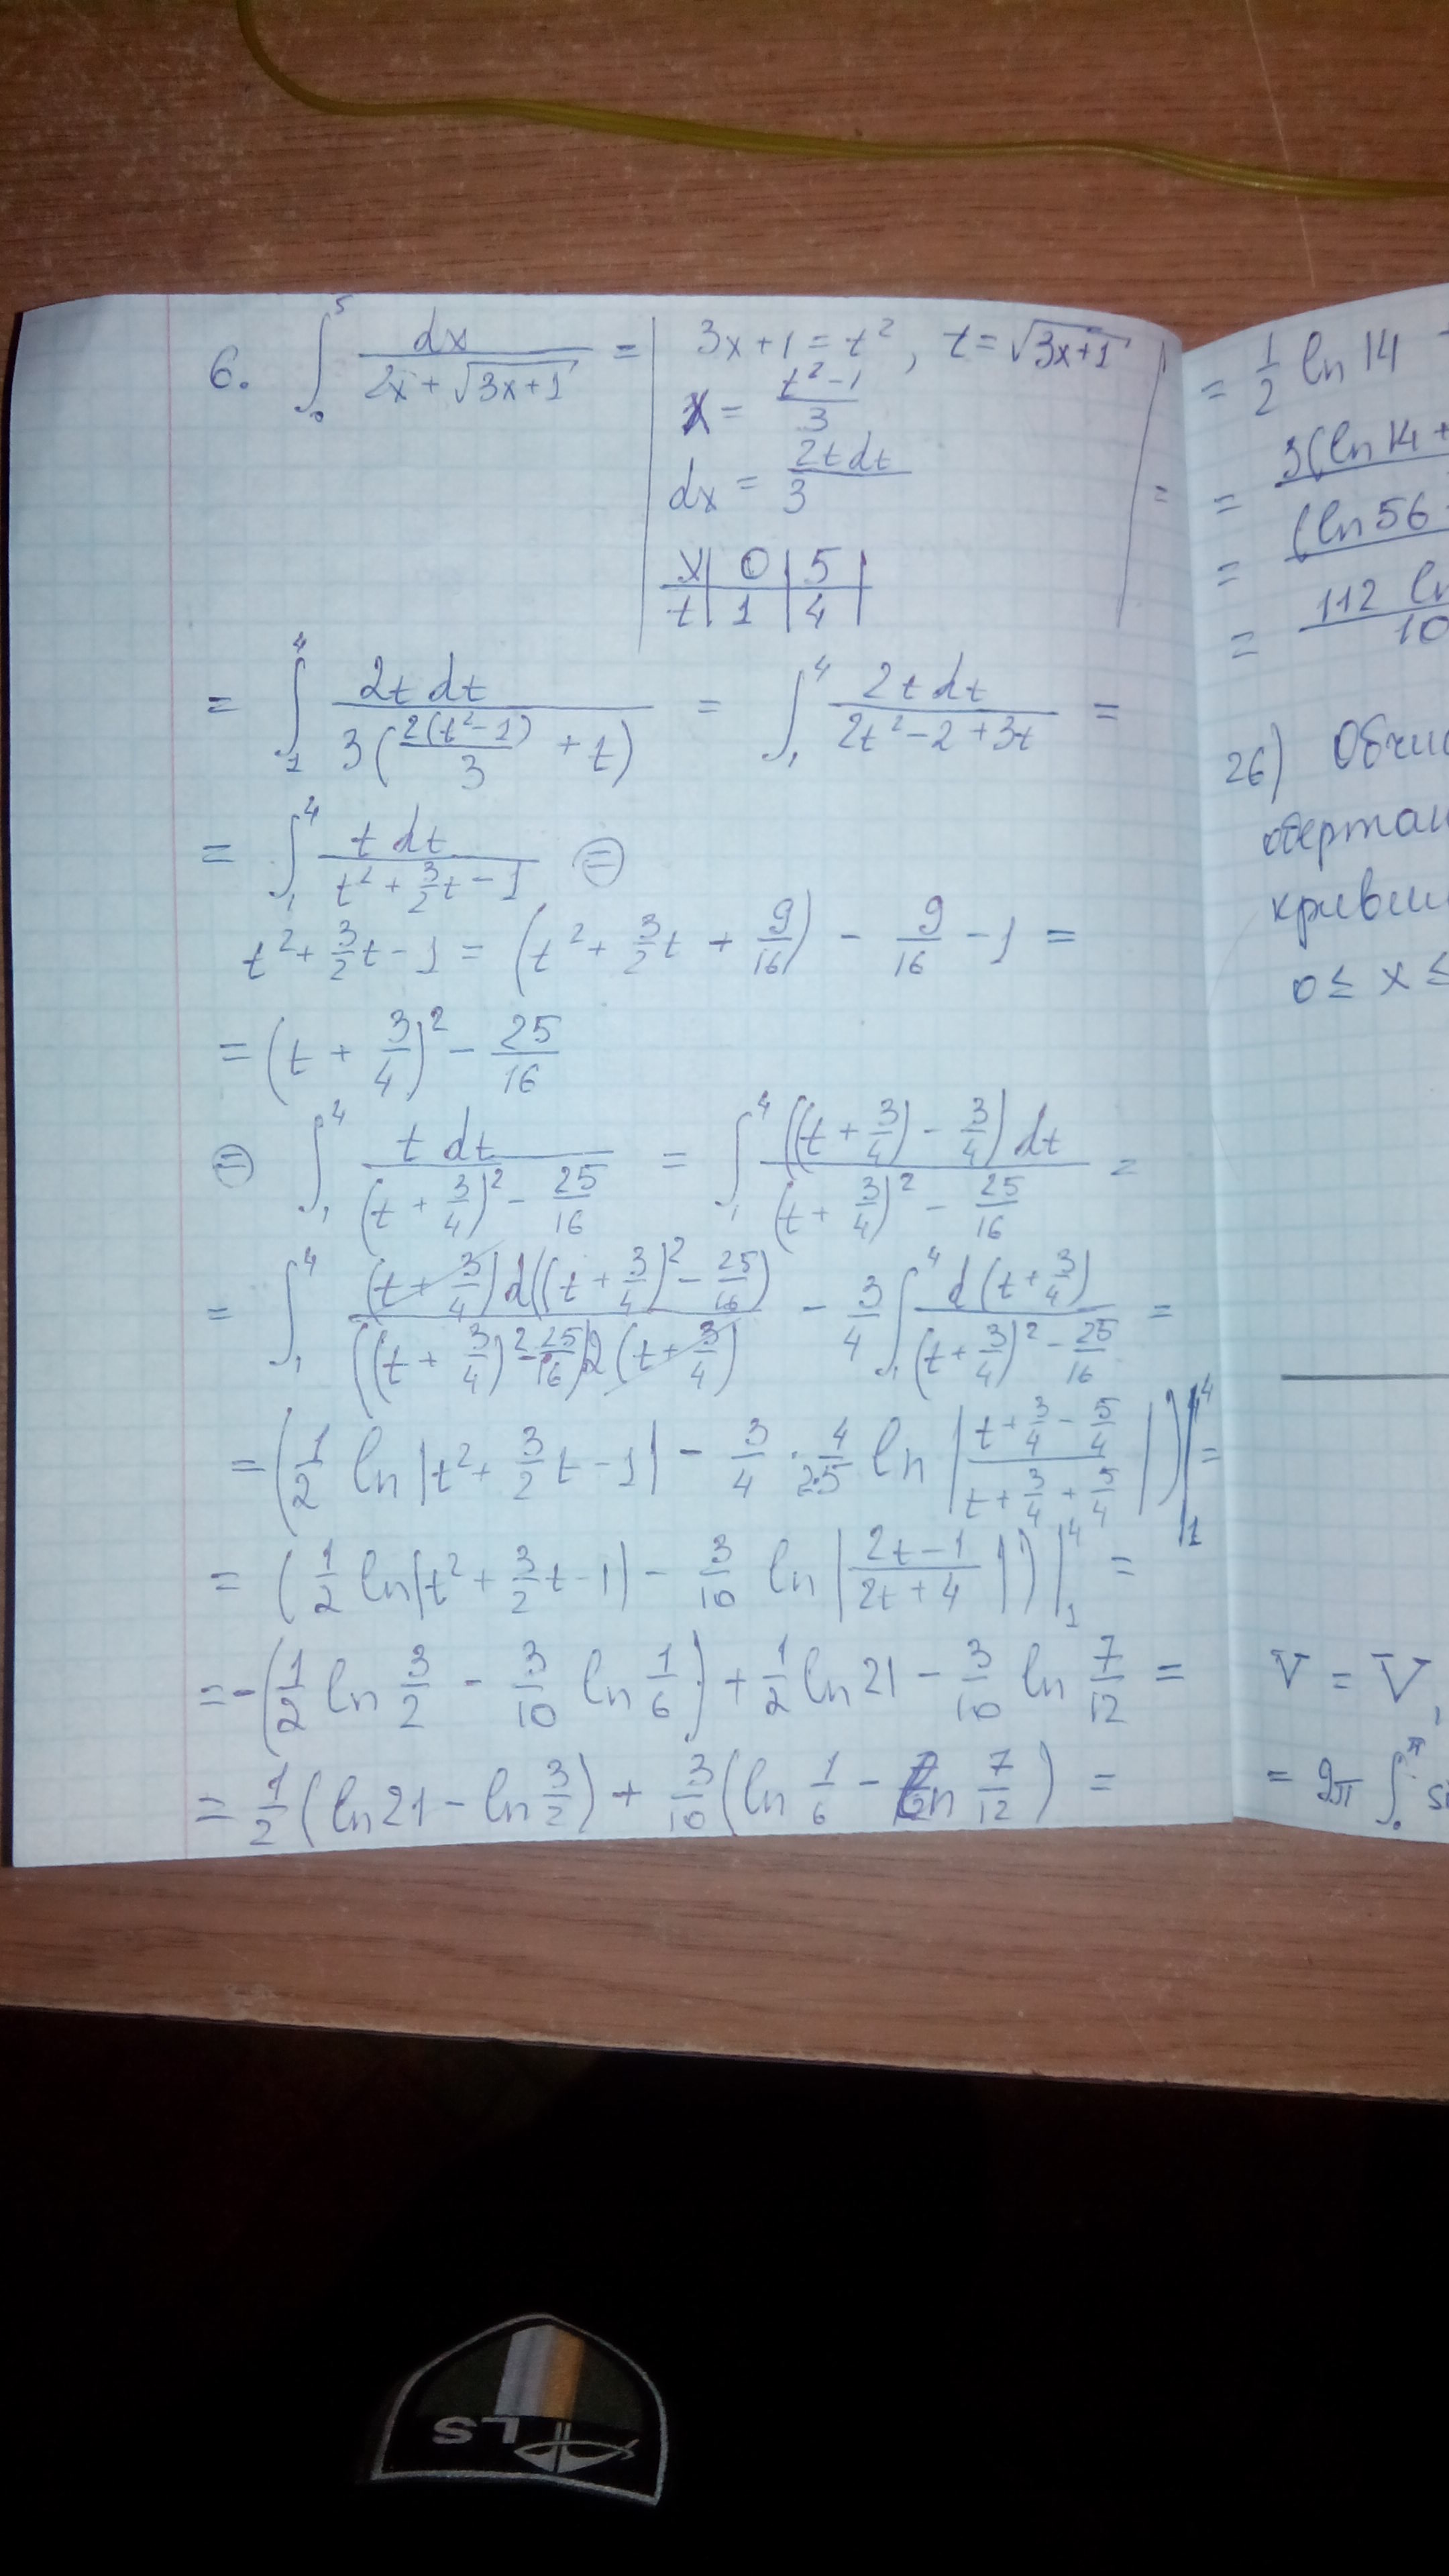 6. ∫₀⁵ dx / (2x + √(3x+1)) = | 3x+1 = t², t = √(3x+1) |
x = (t²-1)/3
dx = 2t dt / 3 =
x | 0 | 5 |
t | 1 | 4 |
= ∫₁⁴ 2t dt / (3(2(t²-1)/3 + t)) = ∫₁⁴ 2t dt / (2t²-2+3t) =
= ∫₁⁴ t dt / (t² + 3/2 t - 1) ⊜
t² + 3/2 t - 1 = (t² + 3/2 t + 9/16) - 9/16 - 1 =
= (t + 3/4)² - 25/16
⊜ ∫₁⁴ t dt / ((t + 3/4)² - 25/16) = ∫₁⁴ ((t + 3/4) - 3/4) dt / ((t + 3/4)² - 25/16) =
= ∫₁⁴ (t + 3/4) d((t + 3/4)² - 25/16) / (((t + 3/4)² - 25/16) 2 (t + 3/4)) - 3/4 ∫₁⁴ d(t + 3/4) / ((t + 3/4)² - 25/16) =
= (1/2 ln|t² + 3/2 t - 1| - 3/4 · 4/(2·5) ln|(t + 3/4 - 5/4) / (t + 3/4 + 5/4)|)|₁⁴ =
= (1/2 ln|t² + 3/2 t - 1| - 3/10 ln|(2t-1)/(2t+4)|)|₁⁴ =
= -(1/2 ln 3/2 - 3/10 ln 1/6) + 1/2 ln 21 - 3/10 ln 7/12 =
= 1/2 (ln 21 - ln 3/2) + 3/10 (ln 1/6 - ln 7/12) =
= 1/2 ln 14
= 3(ln 14 +
= (ln 56
= 112 ln / 10
26) Обчис
обертан
кривим
0 ≤ x ≤
V = V
= 2π ∫₀^π si
LS